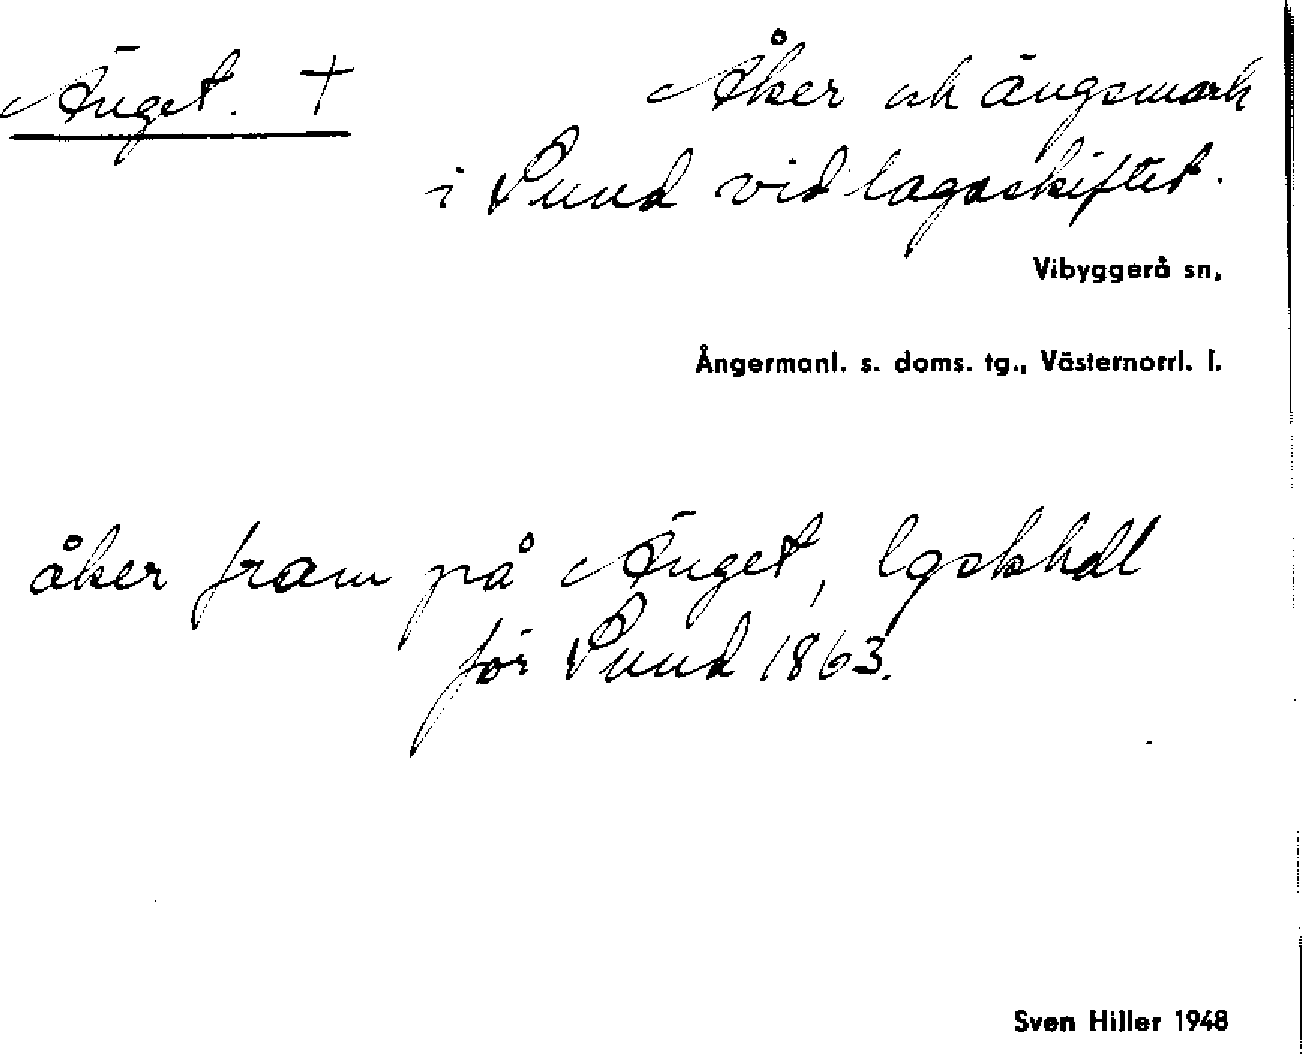 Änget. + Åker och ängsmark
i Sund vid lagaskiftet.
Vibyggerå sn,
Ångermanl. s. doms. tg., Västernorrl. l.
åker fram på Änget, lgskhdl
för Sund 1863.
Sven Hiller 1948